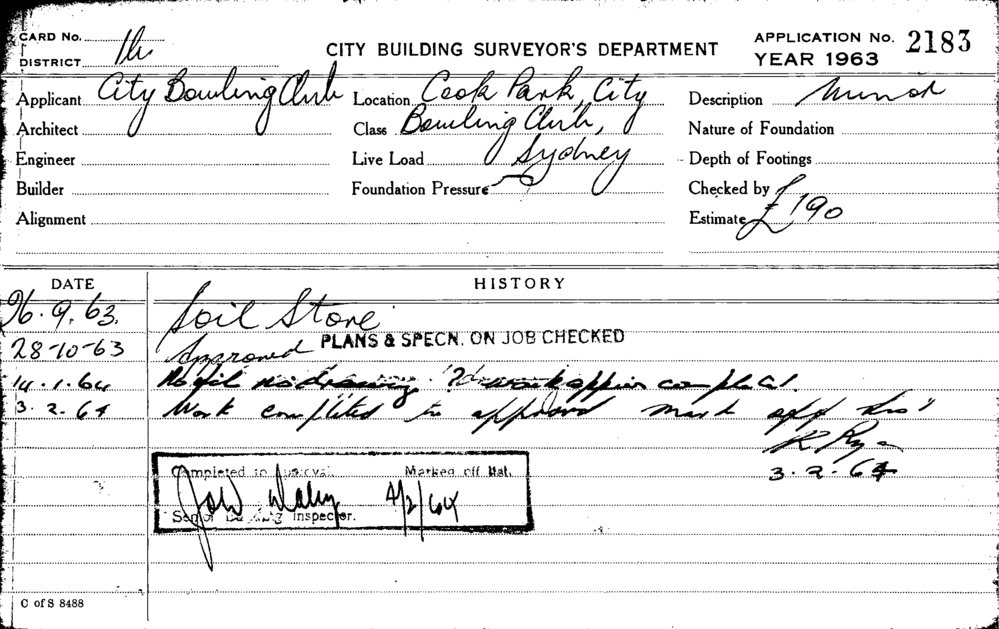 CARD No.
CITY BUILDING SURVEYOR'S DEPARTMENT
APPLICATION No. 2183
YEAR 1963
DISTRICT
Applicant City Bowling Club Location Cook Park, City Description Minor
Architect Class Bowling Club, Nature of Foundation
Engineer Live Load Sydney Depth of Footings
Builder Foundation Pressure Checked by
Alignment Estimate £190
DATE HISTORY
26.9.63. Soil Store
28-10-63 Approved PLANS & SPECN. ON JOB CHECKED
14.1.64 No file no drawing work appears complete.
3.2.64 Work completed to approved mark app
3.2.64
Completed to Approval. Marked off list.
4/2/64
Senior Building Inspector.
C of S 8488